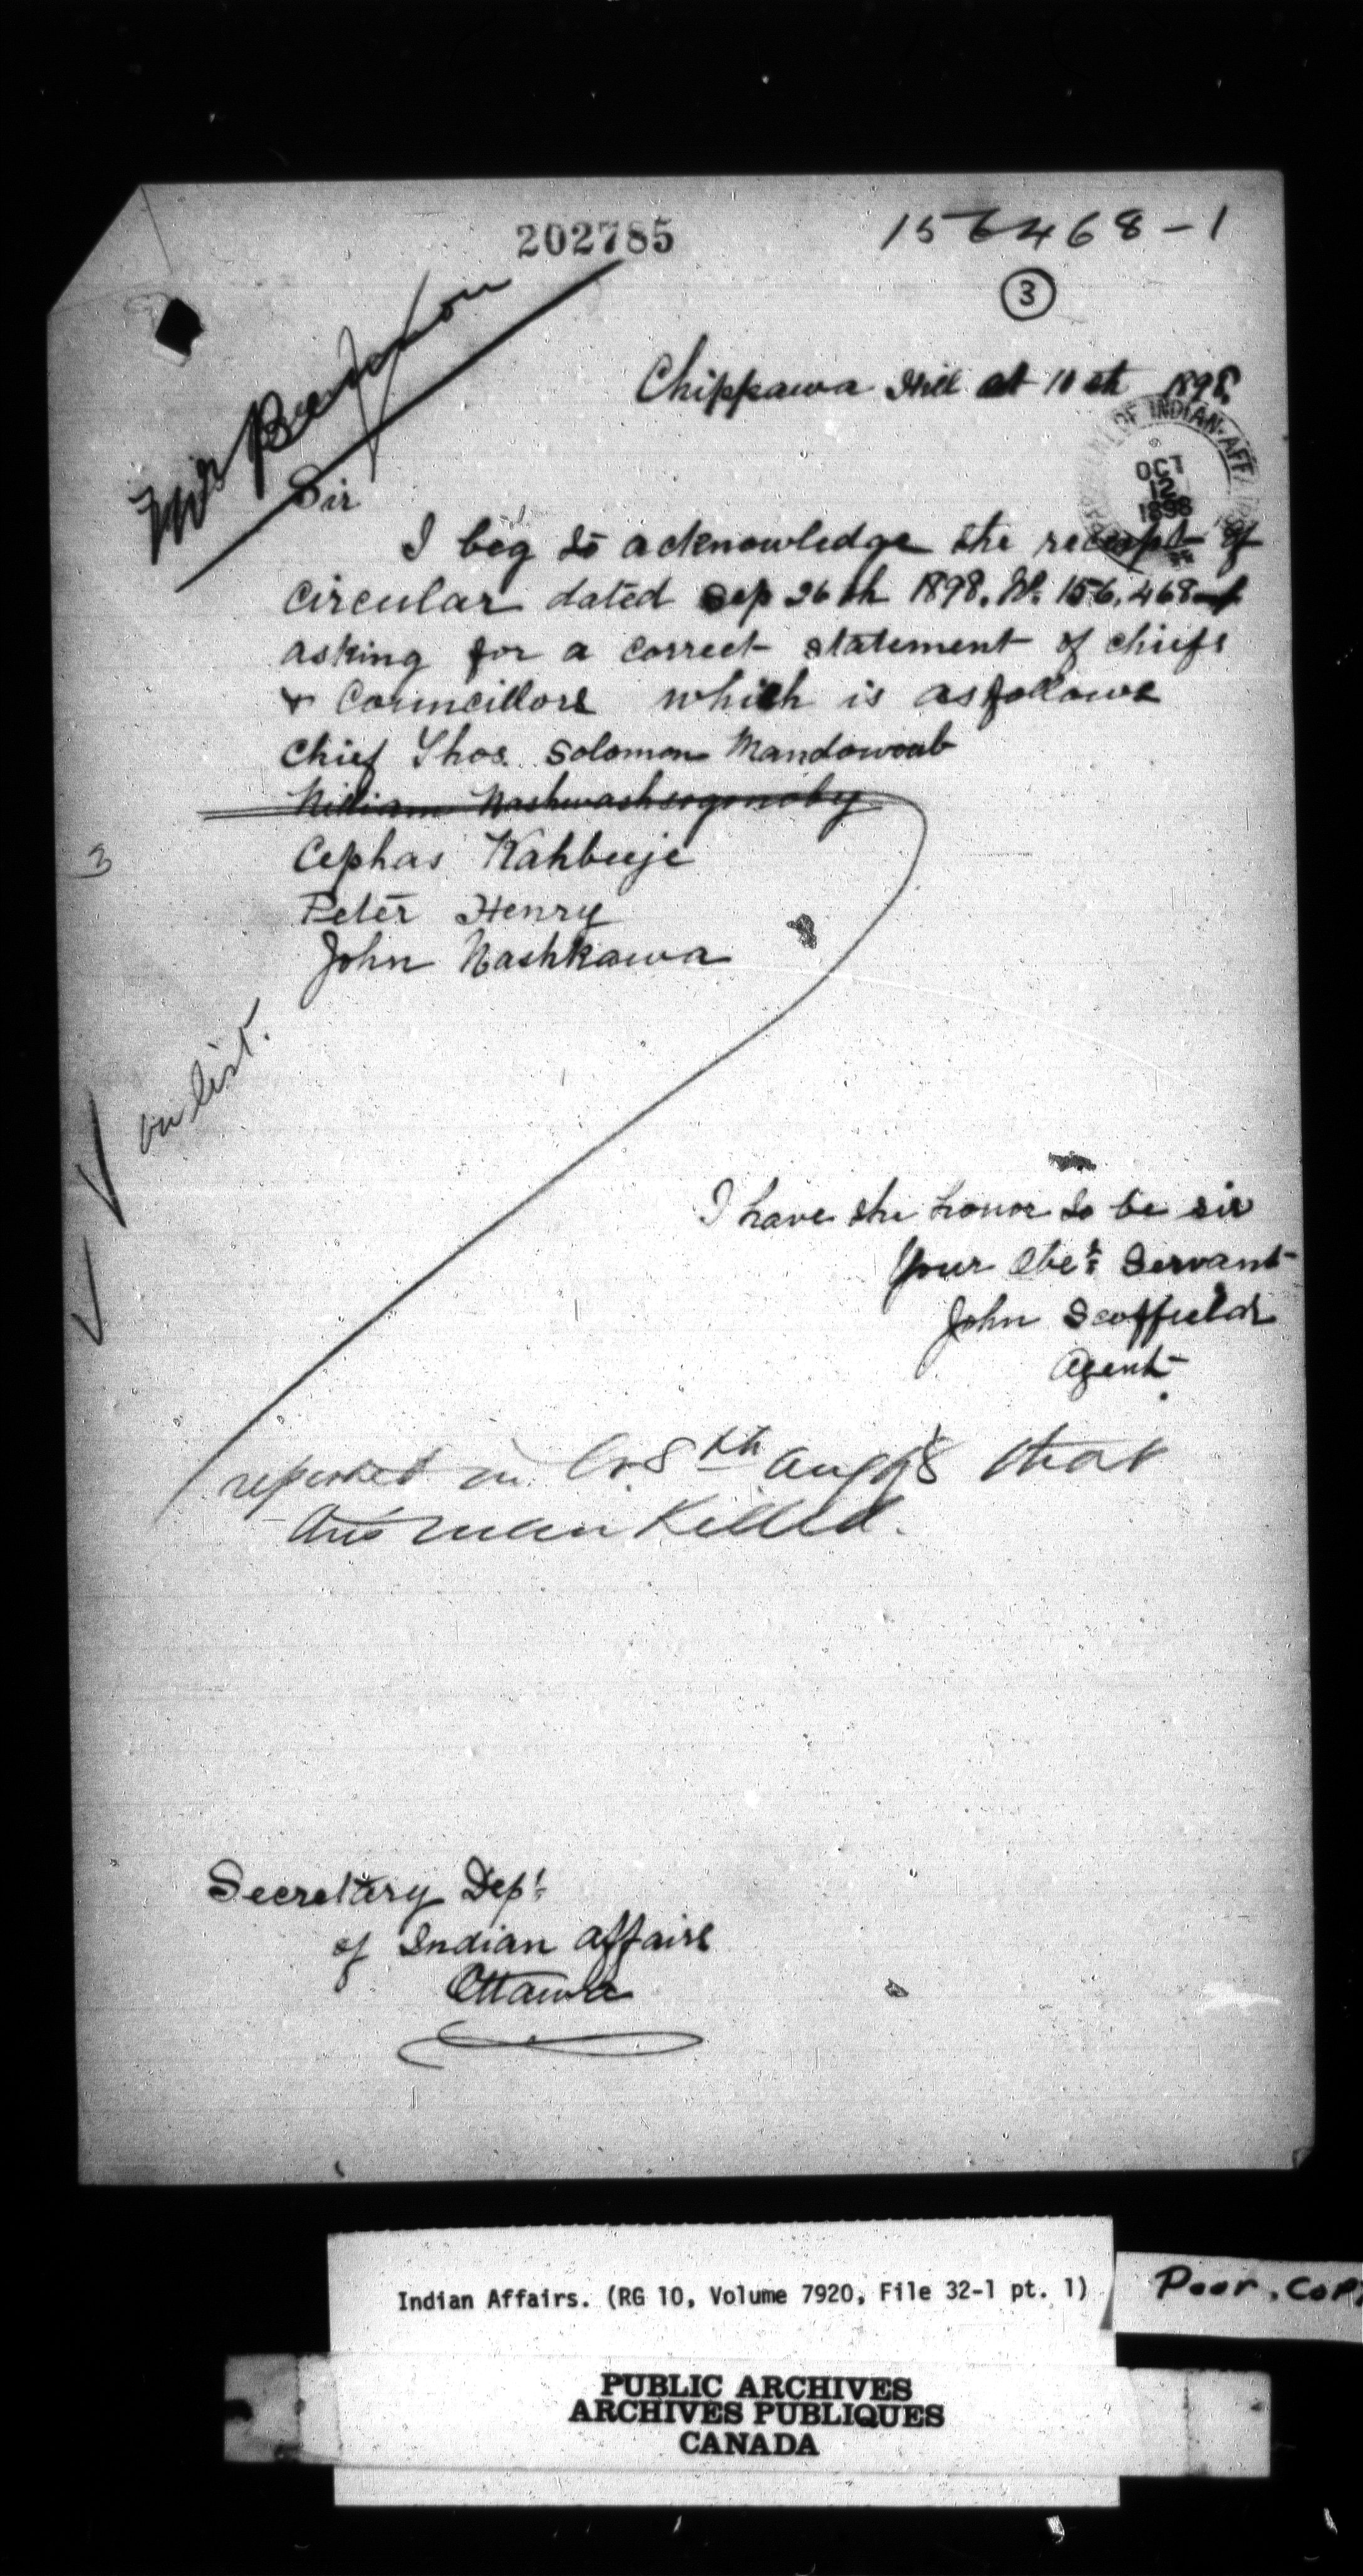 202785
156468-1
3
Mr
Chippawa Hill 10th 1898
DEPARTMENT OF INDIAN AFFAIRS
OCT
12
1898
Sir
I beg to acknowledge the receipt of
circular dated Sep 26th 1898. No. 156,468-1
asking for a correct statement of chiefs
& Councillors which is as follows
Chief Thos. Solomon Mandowoub
William Washwashsogonoby
3
Cephas Kahbeeje
Peter Henry
John Nashkawa
on list.
I have the honor to be sir
Your Obet Servant
John Scoffield
Agent
reported in 8th Aug 98 that
this man Killed.
Secretary Dept
of Indian Affairs
Ottawa
Indian Affairs. (RG 10, Volume 7920, File 32-1 pt. 1)
Poor. Cop
PUBLIC ARCHIVES
ARCHIVES PUBLIQUES
CANADA